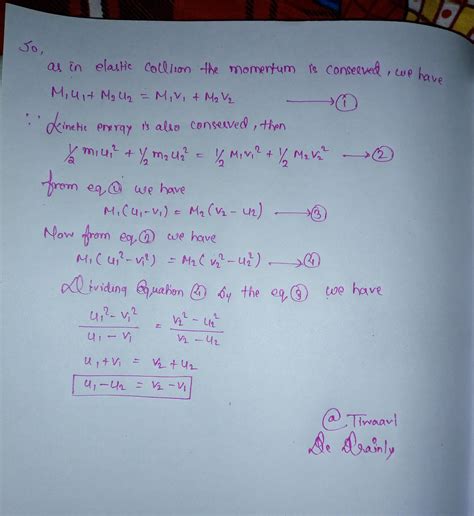 So,
as in elastic collision the momentum is conserved, we have
M₁u₁ + M₂u₂ = M₁v₁ + M₂v₂ → ①
∵ Kinetic energy is also conserved, then
½ m₁u₁² + ½ m₂u₂² = ½ M₁v₁² + ½ M₂v₂² → ②
from eq. ① we have
M₁(u₁-v₁) = M₂(v₂-u₂) → ③
Now from eq. ② we have
M₁(u₁²-v₁²) = M₂(v₂²-u₂²) → ④
Dividing Equation ④ by the eq ③ we have
u₁²-v₁² / u₁-v₁ = v₂²-u₂² / v₂-u₂
u₁+v₁ = v₂+u₂
u₁-u₂ = v₂-v₁
@Tiwaavi
Be Brainly